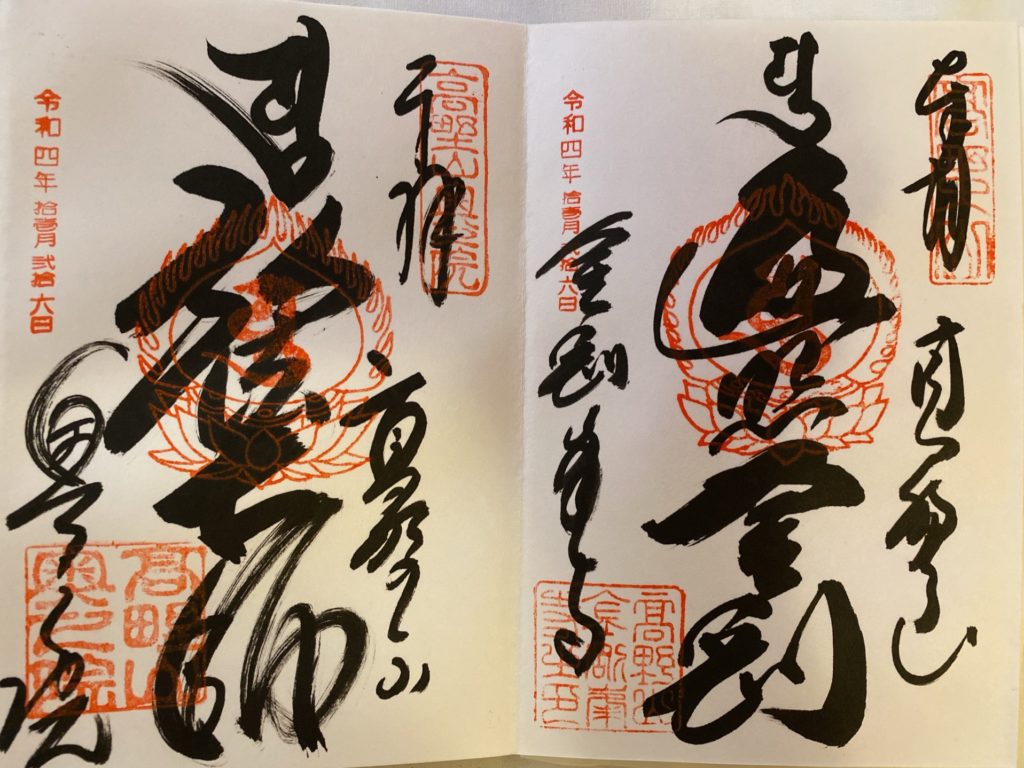 奉拝
高野山
遍照金剛
金剛峯寺
令和四年 拾壹月 弐拾六日
奉拝
高野山
弘法大師
奥之院
令和四年 拾壹月 弐拾六日
高野山
奥之院